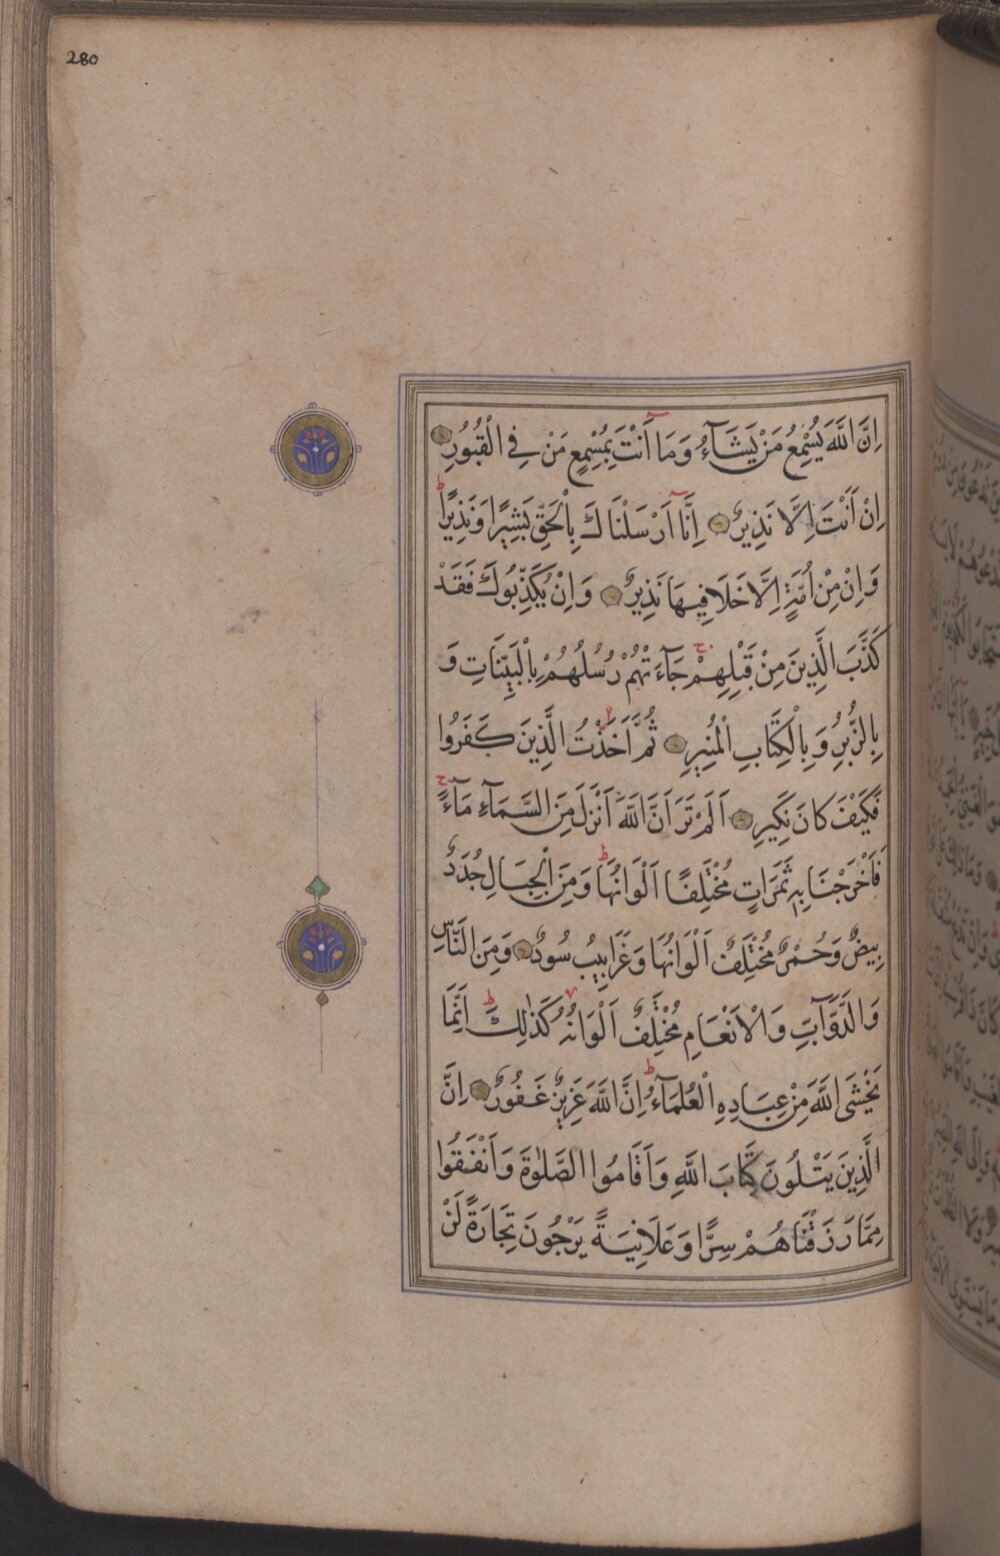 280
اِنَّ اللّٰهَ يُسْمِعُ مَنْ يَشَآءُ وَمَآ اَنْتَ بِمُسْمِعٍ مَنْ فِى الْقُبُورِ
اِنْ اَنْتَ اِلَّا نَذِيرٌ اِنَّآ اَرْسَلْنَاكَ بِالْحَقِّ بَشِيرًا وَنَذِيرًا ط
وَاِنْ مِنْ اُمَّةٍ اِلَّا خَلَا فِيهَا نَذِيرٌ وَاِنْ يُكَذِّبُوكَ فَقَدْ
كَذَّبَ الَّذِينَ مِنْ قَبْلِهِمْ ج جَآءَتْهُمْ رُسُلُهُمْ بِالْبَيِّنَاتِ وَ
بِالزُّبُرِ وَبِالْكِتَابِ الْمُنِيرِ ثُمَّ اَخَذْتُ الَّذِينَ كَفَرُوا
فَكَيْفَ كَانَ نَكِيرِ اَلَمْ تَرَ اَنَّ اللّٰهَ اَنْزَلَ مِنَ السَّمَآءِ مَآءً ج
فَاَخْرَجْنَا بِهِ ثَمَرَاتٍ مُخْتَلِفًا اَلْوَانُهَا ط وَمِنَ الْجِبَالِ جُدَدٌ
بِيضٌ وَحُمْرٌ مُخْتَلِفٌ اَلْوَانُهَا وَغَرَابِيبُ سُودٌ وَمِنَ النَّاسِ
وَالدَّوَآبِّ وَالْاَنْعَامِ مُخْتَلِفٌ اَلْوَانُهُ كَذٰلِكَ ط اِنَّمَا
يَخْشَى اللّٰهَ مِنْ عِبَادِهِ الْعُلَمَآءُ ط اِنَّ اللّٰهَ عَزِيزٌ غَفُورٌ اِنَّ
الَّذِينَ يَتْلُونَ كِتَابَ اللّٰهِ وَاَقَامُوا الصَّلٰوةَ وَاَنْفَقُوا
مِمَّا رَزَقْنَاهُمْ سِرًّا وَعَلَانِيَةً يَرْجُونَ تِجَارَةً لَنْ